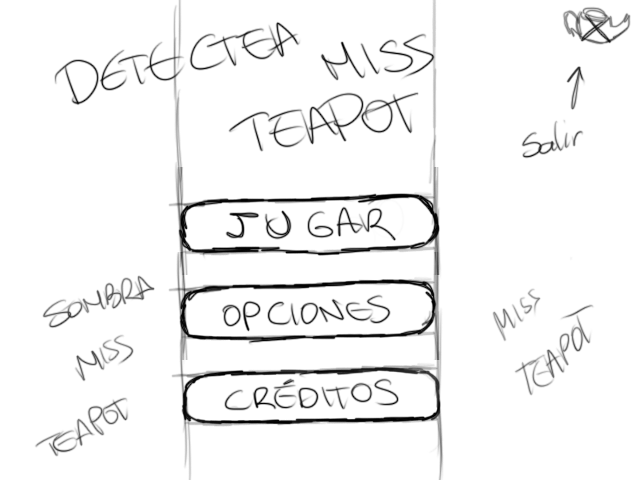 DETECTEA MISS
TEAPOT
Salir
JUGAR
OPCIONES
CRÉDITOS
SOMBRA
MISS
TEAPOT
MISS
TEAPOT